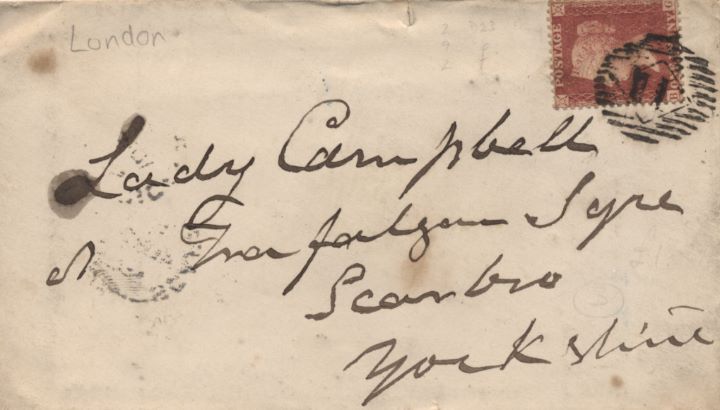 London
POSTAGE
Lady Campbell
Trafalgar Sqre
Scarbro
Yorkshire